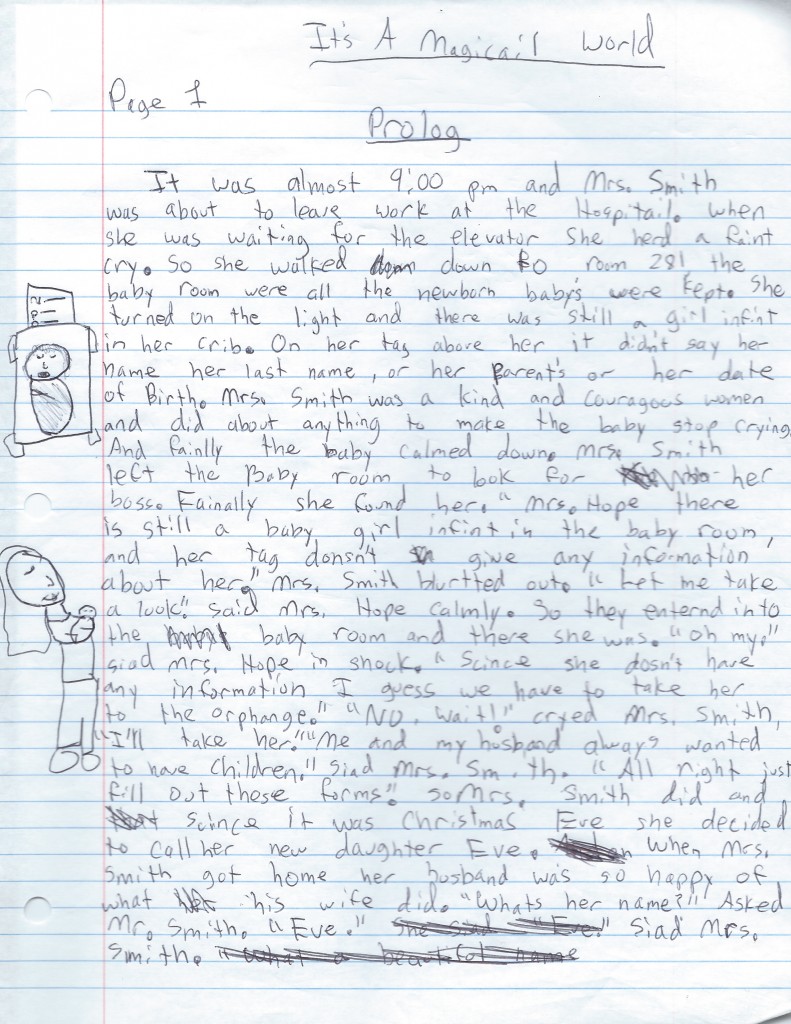 It's A Magicail World
Page 1
Prolog
It was almost 9:00 pm and Mrs. Smith
was about to leave work at the Hospitail. when
she was waiting for the elevator She herd a faint
cry. So she walked down to room 281 the
baby room were all the newborn baby's were kept. She
turned on the light and there was still a girl infint
in her crib. On her tag above her it didn't say her
name her last name, or her parent's or her date
of Birth. Mrs. Smith was a kind and couragous women
and did about anything to make the baby stop crying.
And fainlly the baby calmed down. Mrs. Smith
left the Baby room to look for her
boss. Fainally she found her. "Mrs. Hope there
is still a baby girl infint in the baby room,
and her tag donsn't give any information
about her." Mrs. Smith blurtted out. "Let me take
a look." said Mrs. Hope calmly. So they enternd into
the baby room and there she was. "Oh my."
siad Mrs. Hope in shock. "Scince she dosn't have
any information I guess we have to take her
to the orphange." "NO, wait!" cryed Mrs. Smith,
"I'll take her." "Me and my husband always wanted
to have children." Siad Mrs. Smith. "All right just
fill out these forms." So Mrs. Smith did and
scince it was Christmas Eve she decided
to call her new daughter Eve. When Mrs.
Smith got home her husband was so happy of
what his wife did. "Whats her name?" Asked
Mr. Smith. "Eve." She siad "Eve." Siad Mrs.
Smith. "What a beautiful name